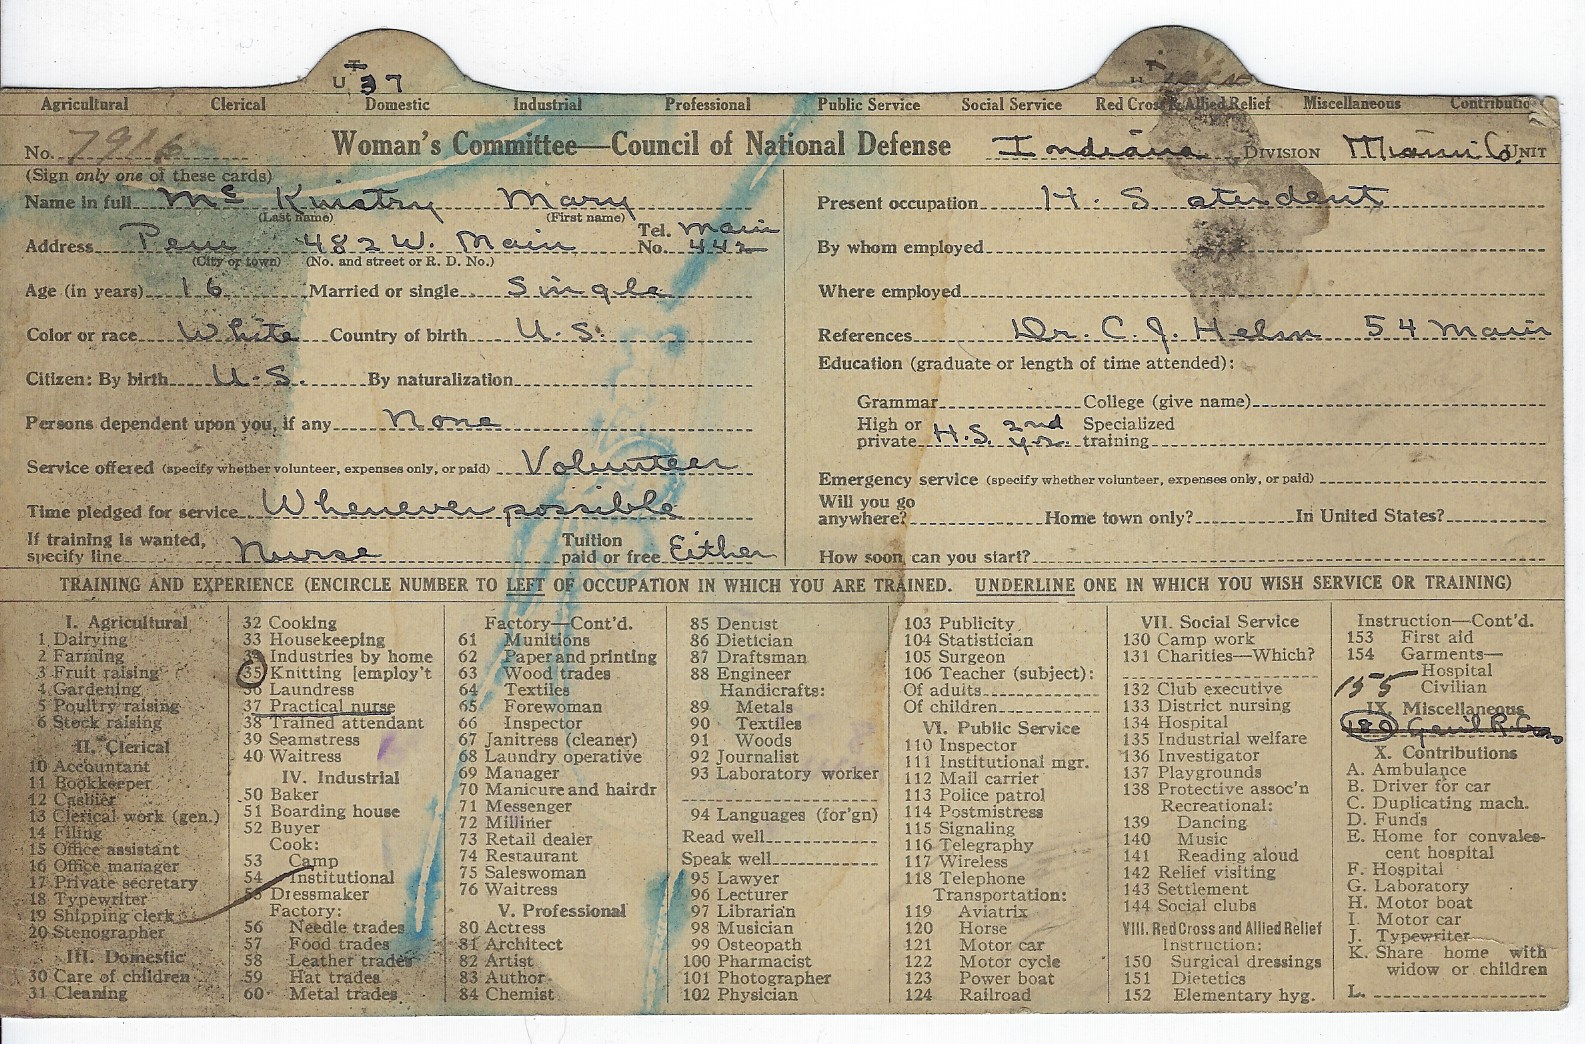 U 37
Agricultural Clerical Domestic Industrial Professional Public Service Social Service Red Cross & Allied Relief Miscellaneous Contributio
No. 7916 Woman's Committee—Council of National Defense Indiana DIVISION Miami Co. UNIT
(Sign only one of these cards)
Name in full Mc Kinstry Mary
(Last name) (First name)
Address Peru 482 W. Main Tel. No. Main 442
(City or town) (No. and street or R. D. No.)
Age (in years) 16 Married or single Single
Color or race White Country of birth U.S.
Citizen: By birth U.S. By naturalization
Persons dependent upon you, if any None
Service offered (specify whether volunteer, expenses only, or paid) Volunteer
Time pledged for service Whenever possible
If training is wanted, specify line Nurse Tuition paid or free Either
Present occupation H. S. student
By whom employed
Where employed
References Dr. C. J. Helm 54 Main
Education (graduate or length of time attended):
Grammar College (give name)
High or private H.S. 2nd yr. Specialized training
Emergency service (specify whether volunteer, expenses only, or paid)
Will you go anywhere? Home town only? In United States?
How soon can you start?
TRAINING AND EXPERIENCE (ENCIRCLE NUMBER TO LEFT OF OCCUPATION IN WHICH YOU ARE TRAINED. UNDERLINE ONE IN WHICH YOU WISH SERVICE OR TRAINING)
I. Agricultural
1 Dairying
2 Farming
3 Fruit raising
4 Gardening
5 Poultry raising
6 Stock raising
II. Clerical
10 Accountant
11 Bookkeeper
12 Cashier
13 Clerical work (gen.)
14 Filing
15 Office assistant
16 Office manager
17 Private secretary
18 Typewriter
19 Shipping clerk
20 Stenographer
III. Domestic
30 Care of children
31 Cleaning
32 Cooking
33 Housekeeping
34 Industries by home
35 Knitting [employ't
36 Laundress
37 Practical nurse
38 Trained attendant
39 Seamstress
40 Waitress
IV. Industrial
50 Baker
51 Boarding house
52 Buyer
Cook:
53 Camp
54 Institutional
55 Dressmaker
Factory:
56 Needle trades
57 Food trades
58 Leather trades
59 Hat trades
60 Metal trades
Factory—Cont'd.
61 Munitions
62 Paper and printing
63 Wood trades
64 Textiles
65 Forewoman
66 Inspector
67 Janitress (cleaner)
68 Laundry operative
69 Manager
70 Manicure and hairdr
71 Messenger
72 Milliner
73 Retail dealer
74 Restaurant
75 Saleswoman
76 Waitress
V. Professional
80 Actress
81 Architect
82 Artist
83 Author
84 Chemist
85 Dentist
86 Dietician
87 Draftsman
88 Engineer
Handicrafts:
89 Metals
90 Textiles
91 Woods
92 Journalist
93 Laboratory worker
94 Languages (for'gn)
Read well
Speak well
95 Lawyer
96 Lecturer
97 Librarian
98 Musician
99 Osteopath
100 Pharmacist
101 Photographer
102 Physician
103 Publicity
104 Statistician
105 Surgeon
106 Teacher (subject):
Of adults
Of children
VI. Public Service
110 Inspector
111 Institutional mgr.
112 Mail carrier
113 Police patrol
114 Postmistress
115 Signaling
116 Telegraphy
117 Wireless
118 Telephone
Transportation:
119 Aviatrix
120 Horse
121 Motor car
122 Motor cycle
123 Power boat
124 Railroad
VII. Social Service
130 Camp work
131 Charities—Which?
132 Club executive
133 District nursing
134 Hospital
135 Industrial welfare
136 Investigator
137 Playgrounds
138 Protective assoc'n
Recreational:
139 Dancing
140 Music
141 Reading aloud
142 Relief visiting
143 Settlement
144 Social clubs
VIII. Red Cross and Allied Relief
Instruction:
150 Surgical dressings
151 Dietetics
152 Elementary hyg.
Instruction—Cont'd.
153 First aid
154 Garments—
Hospital
155 Civilian
IX. Miscellaneous
180 Gen'l R. Cross
X. Contributions
A. Ambulance
B. Driver for car
C. Duplicating mach.
D. Funds
E. Home for convales-
cent hospital
F. Hospital
G. Laboratory
H. Motor boat
I. Motor car
J. Typewriter
K. Share home with
widow or children
L.